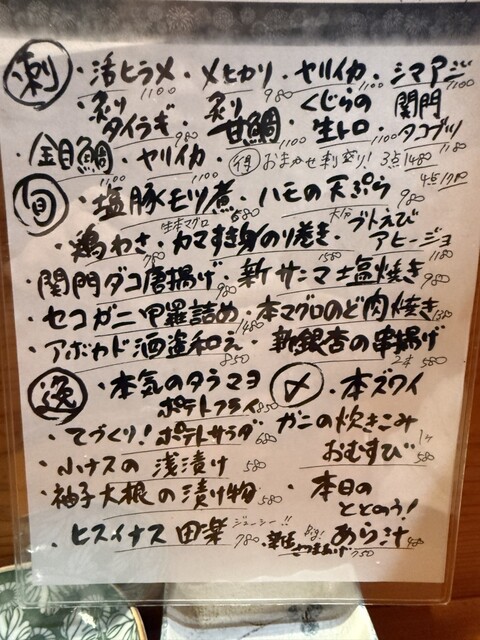 刺 ・活ヒラメ 1100 ・メヒカリ 980 ・ヤリイカ 1100 ・シマアジ 1100
・炙りタイラギ 980 ・炙り甘鯛 1100 ・くじらの生トロ 1100 ・関門タコブツ 1180
・金目鯛 1100 ・ヤリイカ 1100 ・得 おまかせ刺盛り! 3点1480 4点1780
旬 ・塩豚モツ煮 680 ・ハモの天ぷら 980
・鶏わさ 780 ・生本マグロカマすき身のり巻き 1580 ・大分ブトえびアヒージョ 1180
・関門ダコ唐揚げ 980 ・新サンマ塩焼き 980
・セコガニ甲羅詰め 1480 ・本マグロのど肉焼き
・アボカド酒盗和え 850 ・新銀杏の串揚げ 2本 580
逸 ・本気のタラマヨポテトフライ 850
・てづくり!ポテトサラダ 680
・小ナスの浅漬け 580
・柚子大根の漬け物 580
・ヒスイナス田楽 ジューシー!! 780 ・Big! さつまあげ 750
〆 ・本ズワイガニの炊きこみおむすび 1ヶ 580
・本日のととのう!あら汁 480